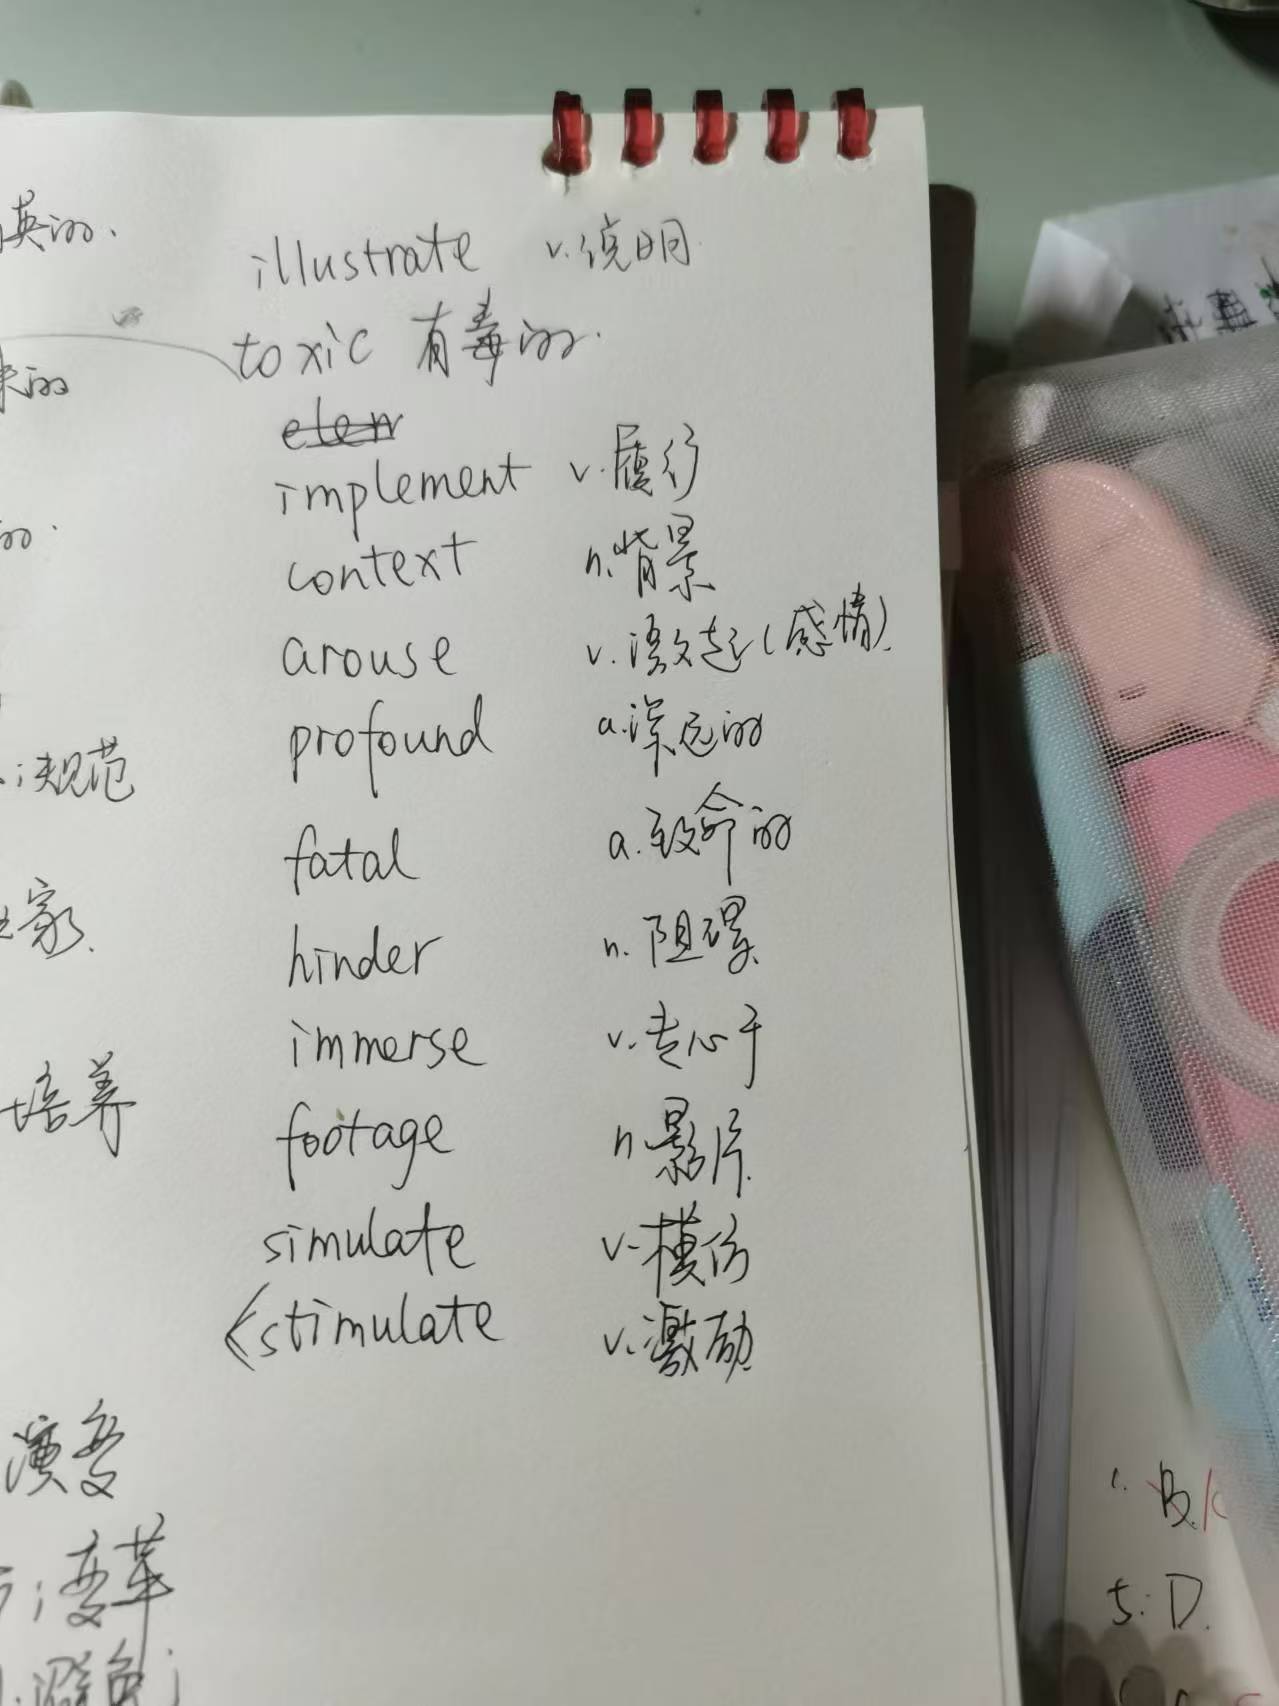 英的.
illustrate v.说明.
toxic 有毒的.
的
implement v.履行
context n.背景
的.
arouse v.激起(感情).
profound a.深远的
;规范
fatal a.致命的
家.
hinder n.阻碍
immerse v.专心于
培养
footage n.影片.
simulate v.模仿
stimulate v.激励.
演变
;变革
避免;
1. B.
5. D.